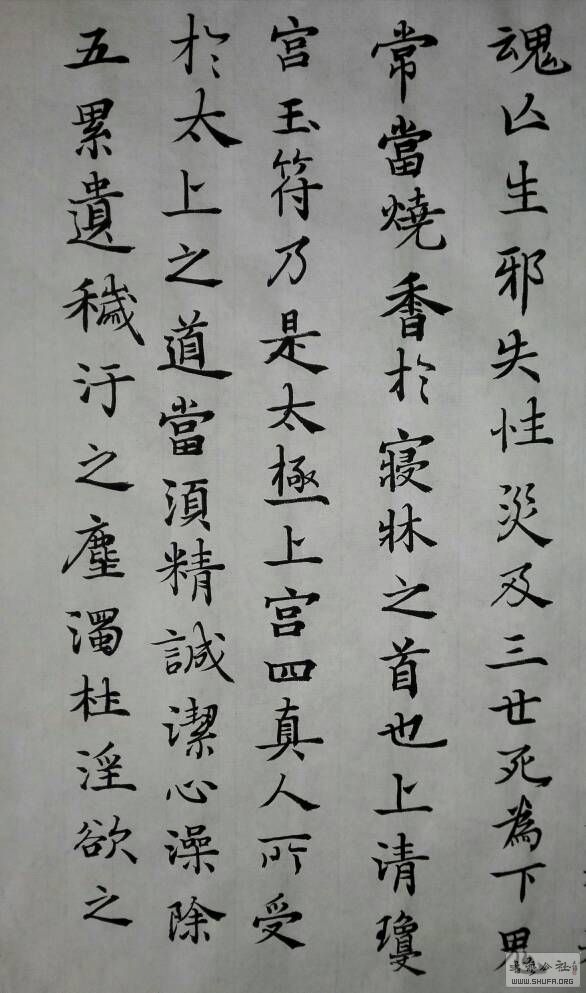 魂亾生邪失性災及三世死為下鬼
常當燒香於寢牀之首也上清瓊
宮玉符乃是太極上宮四真人所受
於太上之道當湏精誠潔心澡除
五累遺穢汙之塵濁杜淫欲之
WWW.SHUFA.ORG